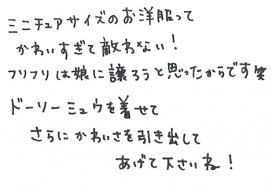 ミニチュアサイズのお洋服って
かわいすぎて敵わない!
フリフリは娘に譲ろうと思ったからです笑
ドーリーミュウを着せて
さらにかわいさを引き出して
あげて下さいね!